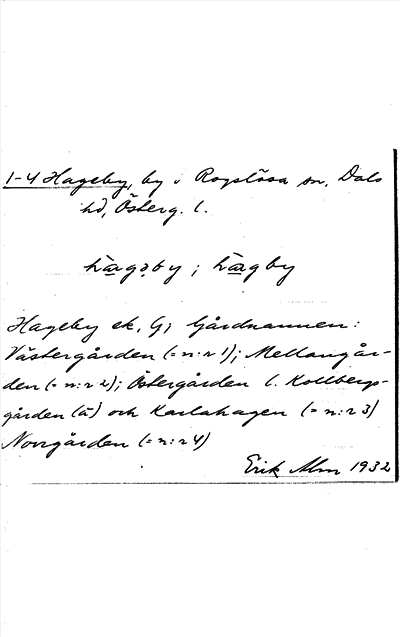 1-4 Hageby, by i Rogslösa sn, Dals
hd, Österg. l.
hagəby ; hagby
Hageby ek. G; Gårdnamnen:
Västergården (= n:r 1); Mellangår-
den (= n:r 2); Östergården l. Kollbergs-
gården (ä) och Karlshagen (= n:r 3)
Norrgården (= n:r 4)
Erik Alm 1932